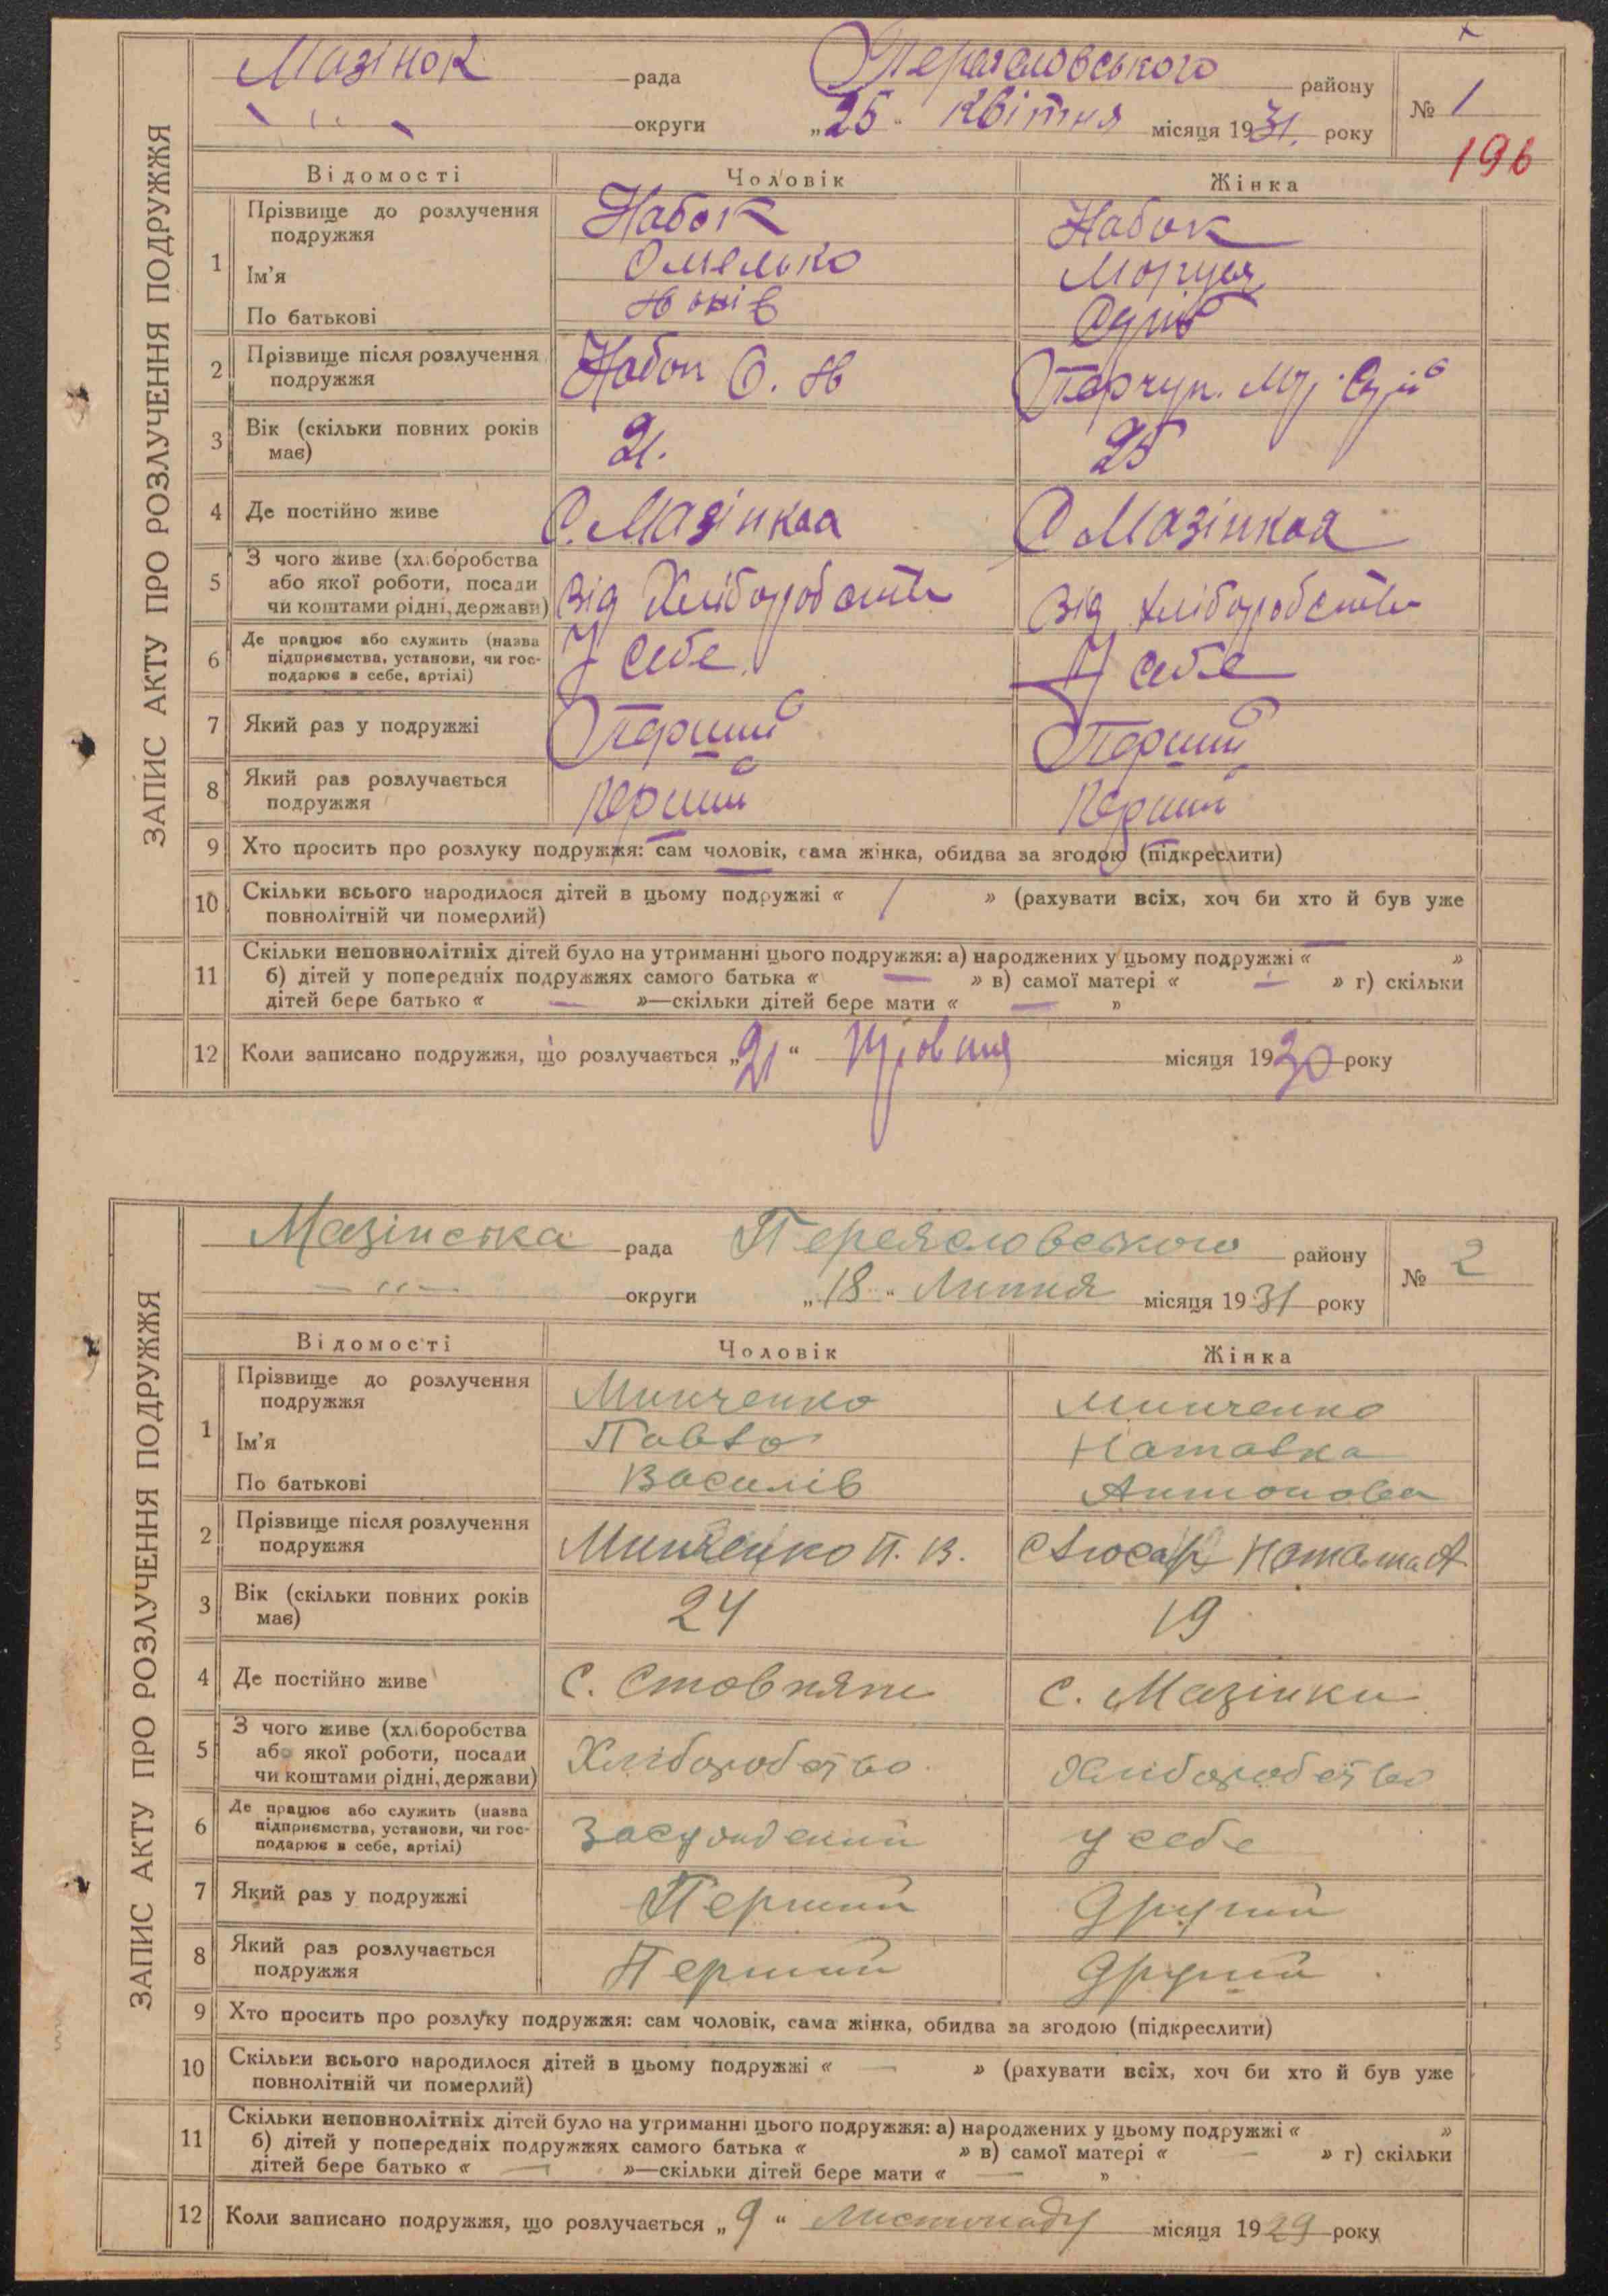 ЗАПИС АКТУ ПРО РОЗЛУЧЕННЯ ПОДРУЖЖЯ
Мазінок рада района району
округи „25“ квітня місяця 1931. року
№ 1
196
Відомості Чоловік Жінка
1 Прізвище до розлучення подружжя Набок Набок
Ім'я Омелько
По батькові
2 Прізвище після розлучення подружжя Набок О.
3 Вік (скільки повних років має) 21. 25
4 Де постійно живе С. Мазінкаа С Мазінкая
5 З чого живе (хліборобства
або якої роботи, посади
чи коштами рідні, держави) Від Хліборобств Від хліборобств
6 Де працює або служить (назва
підприємства, установи, чи гос-
подарює в себе, артілі) У себе У себе
7 Який раз у подружжі Перший Перший
8 Який раз розлучається
подружжя Перший Перший
9 Хто просить про розлуку подружжя: сам чоловік, сама жінка, обидва за згодою (підкреслити)
10 Скільки всього народилося дітей в цьому подружжі « / » (рахувати всіх, хоч би хто й був уже
повнолітній чи померлий)
11 Скільки неповнолітніх дітей було на утриманні цього подружжя: а) народжених у цьому подружжі « — »
б) дітей у попередніх подружжях самого батька « — » в) самої матері « — » г) скільки
дітей бере батько « — »—скільки дітей бере мати « — »
12 Коли записано подружжя, що розлучається „21“ місяця 1930 року
ЗАПИС АКТУ ПРО РОЗЛУЧЕННЯ ПОДРУЖЖЯ
Мазінська рада Переясловського району
— " — округи „18“ Липня місяця 1931 року
№ 2
Відомості Чоловік Жінка
1 Прізвище до розлучення
подружжя Минченко Минченко
Ім'я Павло Наталка
По батькові Василів Антонова
2 Прізвище після розлучення
подружжя Минченко П. В. Слюсар Наталка А
3 Вік (скільки повних років
має) 24 19
4 Де постійно живе С. Стовпяги С. Мазінки
5 З чого живе (хліборобства
або якої роботи, посади
чи коштами рідні, держави) Хліборобство Хліборобство
6 Де працює або служить (назва
підприємства, установи, чи гос-
подарює в себе, артілі) Засуджений у себе
7 Який раз у подружжі Перший Другий
8 Який раз розлучається
подружжя Перший Другий
9 Хто просить про розлуку подружжя: сам чоловік, сама жінка, обидва за згодою (підкреслити)
10 Скільки всього народилося дітей в цьому подружжі « — » (рахувати всіх, хоч би хто й був уже
повнолітній чи померлий)
11 Скільки неповнолітніх дітей було на утриманні цього подружжя: а) народжених у цьому подружжі « »
б) дітей у попередніх подружжях самого батька « » в) самої матері « — » г) скільки
дітей бере батько « — »—скільки дітей бере мати « — »
12 Коли записано подружжя, що розлучається „9“ Листопаду місяця 1929 року